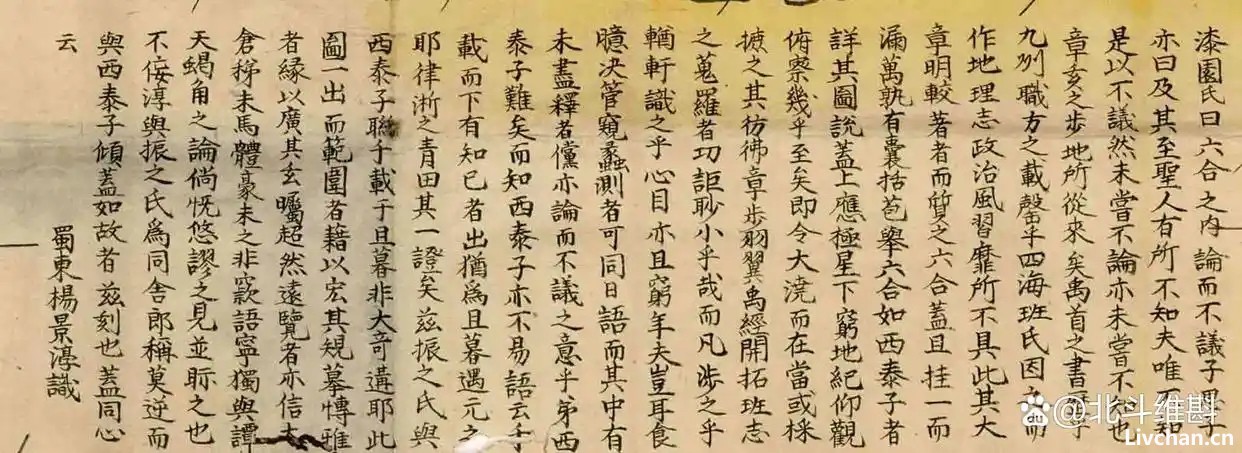 漆園氏曰六合之內論而不議子思子
亦曰及其至聖人有所不知夫唯不知
是以不議然未嘗不論亦未嘗不知也
章亥之步地所從來矣禹首之書乎
九州職方之載罄乎四海班氏因之而
作地理志政治風習靡所不具此其大
章明較著者而質之六合蓋且挂一而
漏萬孰有囊括苞舉六合如西泰子者
詳其圖說蓋上應極星下窮地紀仰觀
俯察幾乎至矣即令大澆而在當或採
摭之其彷彿章步羽翼禹經開拓班志
之蒐羅者功詎眇小乎哉而凡涉之乎
輶軒識之乎心目亦且窮年夫豈耳食
臆決管窺蠡測者可同日語而其中有
未盡釋者儻亦論而不議之意乎第西
泰子難矣而知西泰子亦不易語云千
載而下有知已者出猶爲旦暮遇元之
耶律浙之青田其一證矣茲振之氏與
西泰子聯千載于旦暮非大奇遘耶此
圖一出而範圍者藉以宏其規摹博雅
者緣以廣其玄矚超然遠覽者亦信太
倉稊米馬體豪末之非窾語寧獨與譚
天蝎角之論倘怳悠謬之見並眎之也
不佞淳與振之氏爲同舍郎稱莫逆而
與西泰子傾蓋如故者茲刻也蓋同心
云
蜀東楊景淳識
@北斗维斟
Livchan.cn